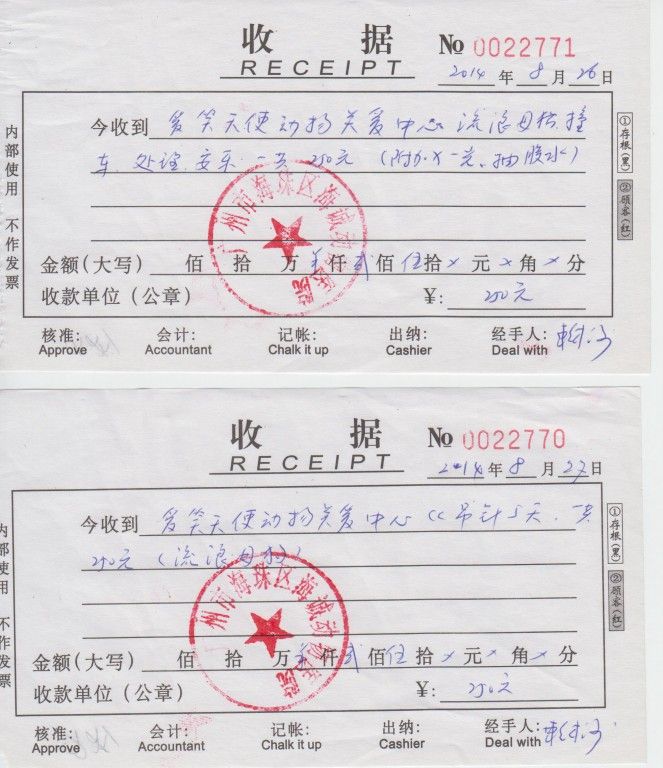 收 据 № 0022771
RECEIPT 2014 年 8 月 26 日
今收到 爱笑天使动物关爱中心 流浪母狗撞
车、处理、安乐、一共 250元 (附加X一光、抽胶水)
金额(大写) 佰 拾 万 仟 贰 佰 伍 拾 × 元 × 角 × 分
收款单位(公章) ¥: 250元
核准: 会计: 记帐: 出纳: 经手人:
Approve Accountant Chalk it up Cashier Deal with
内部使用 不作发票
①存根(黑)
②顾客(红)
广州市海珠区海诚动物医院
收 据 № 0022770
RECEIPT 2014 年 8 月 27 日
今收到 爱笑天使动物关爱中心 吊针5天、一共
250元 (流浪母狗)
金额(大写) 佰 拾 万 仟 贰 佰 伍 拾 × 元 × 角 × 分
收款单位(公章) ¥: 250元
核准: 会计: 记帐: 出纳: 经手人:
Approve Accountant Chalk it up Cashier Deal with
内部使用 不作发票
①存根(黑)
②顾客(红)
广州市海珠区海诚动物医院